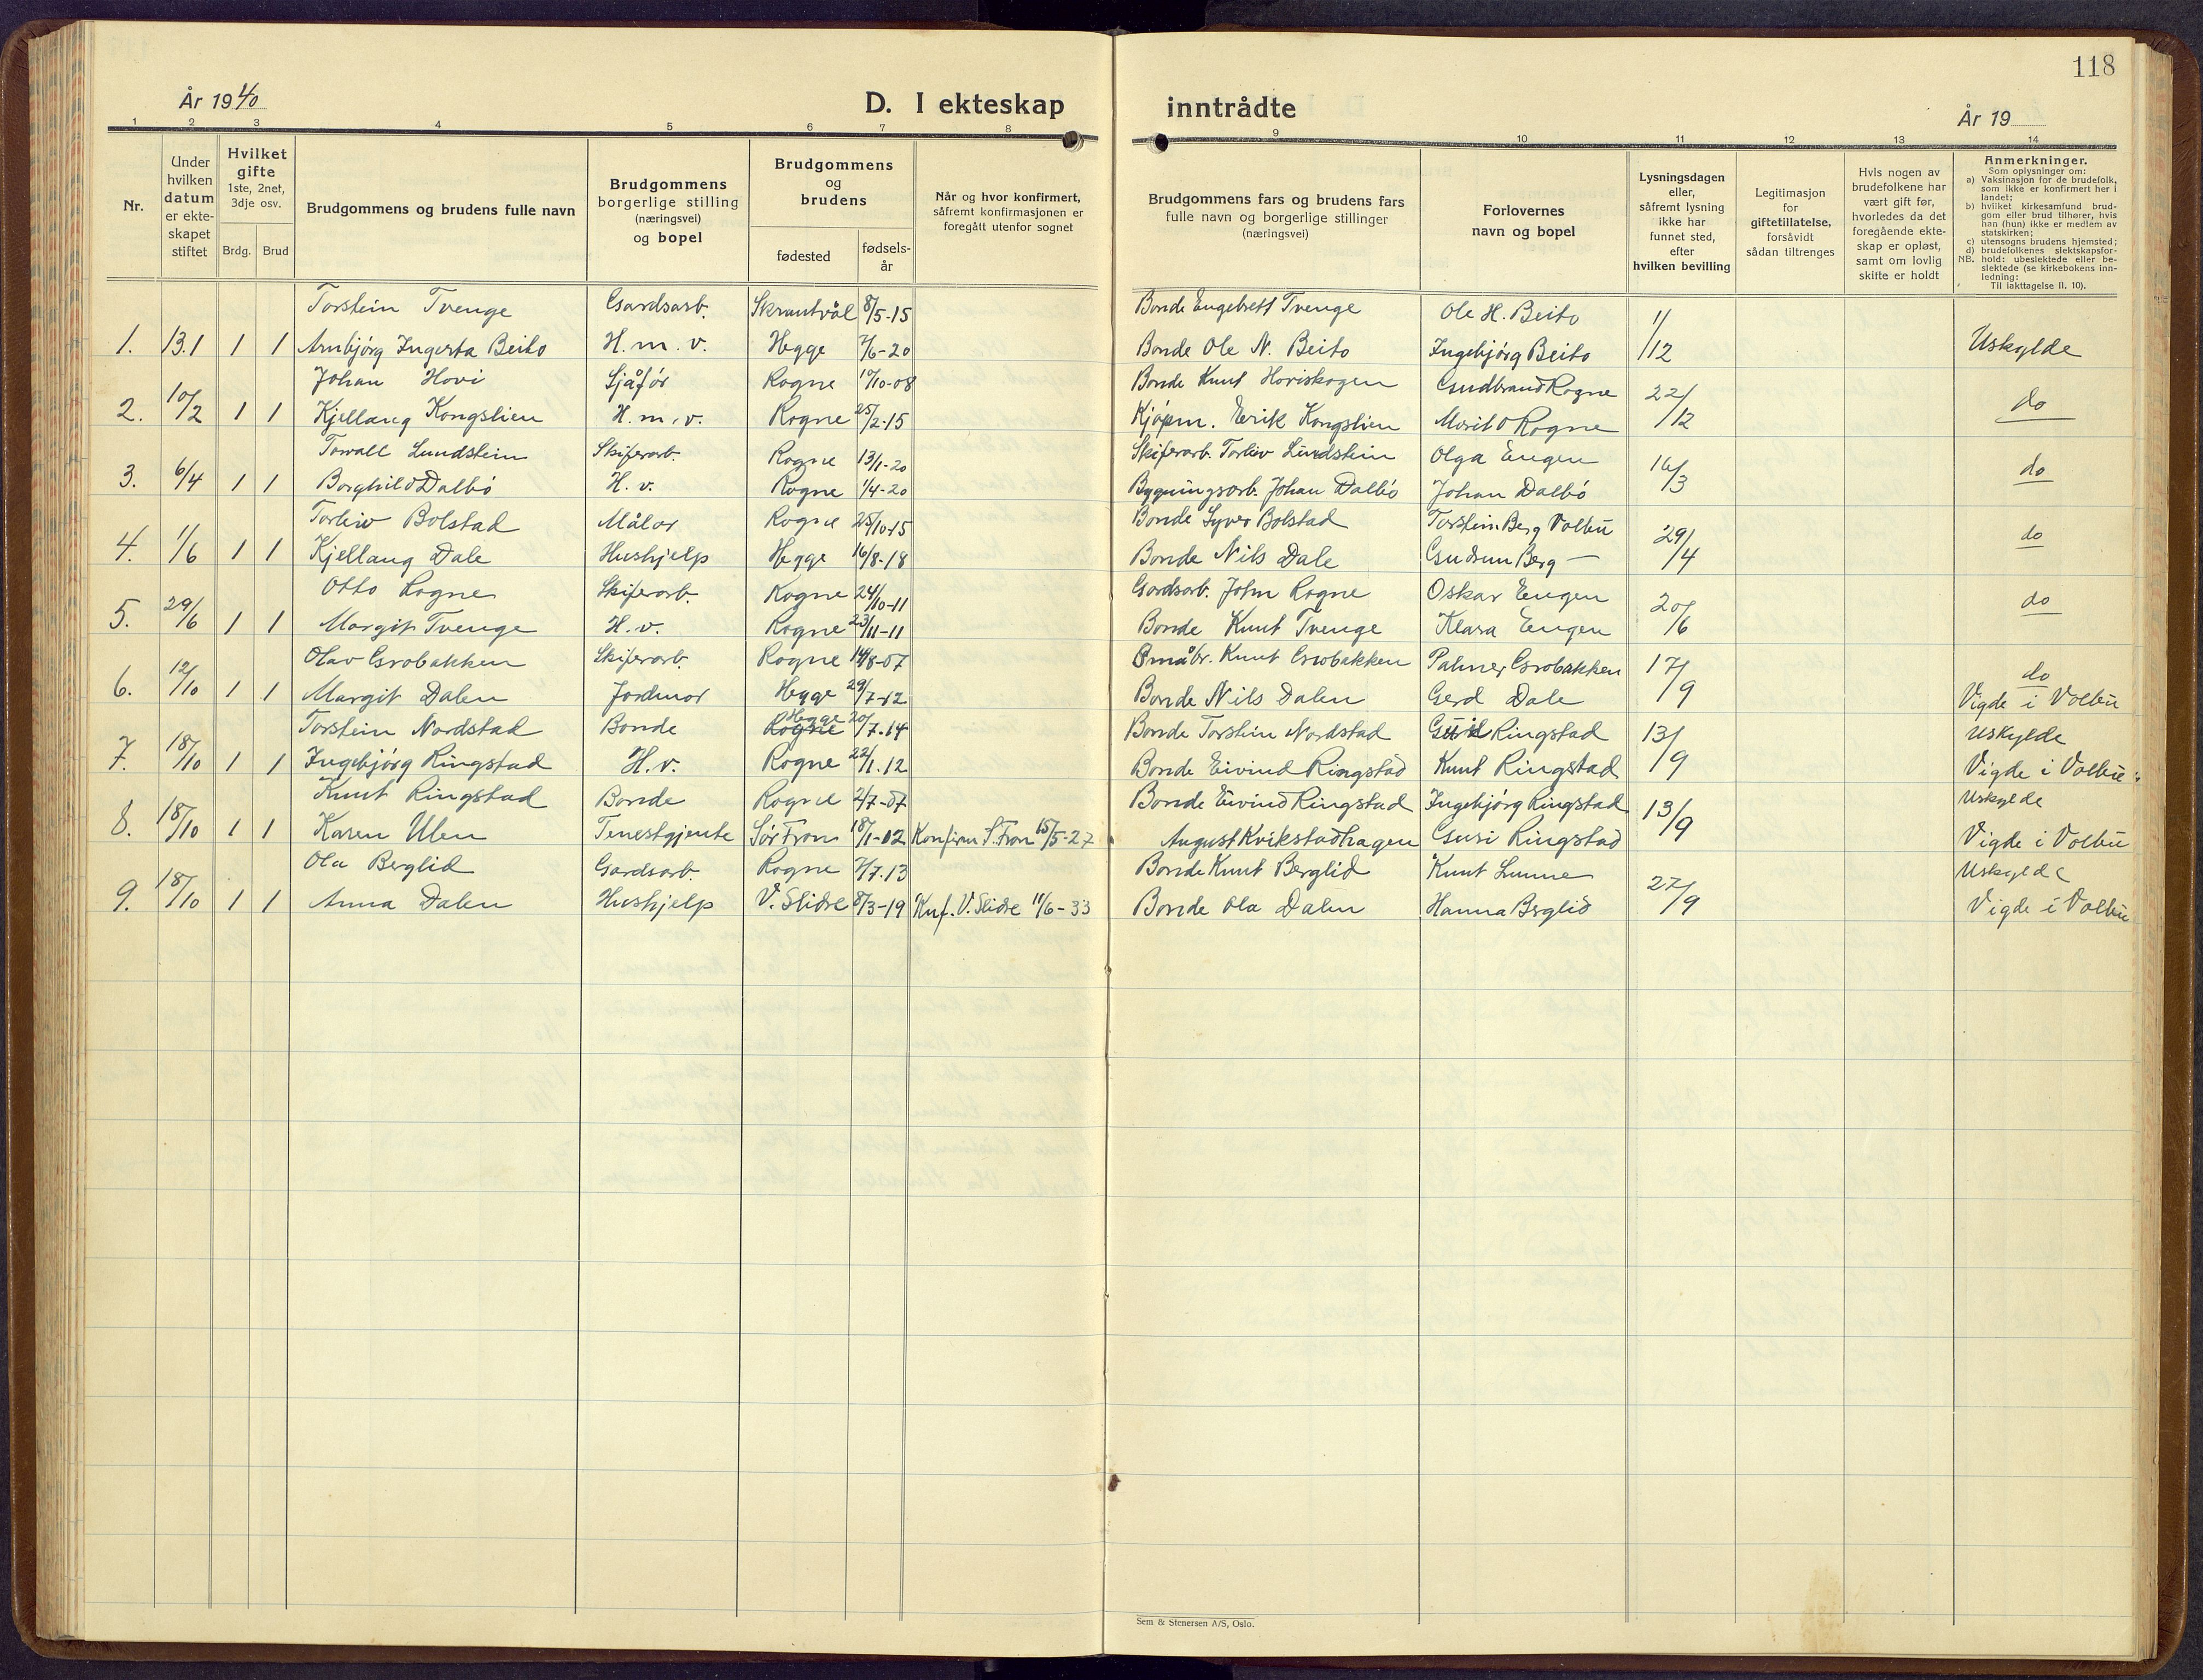 118
År 1940
D. I ekteskap inntrådte
År 19
1 2 3 4 5 6 7 8 9 10 11 12 13 14
Nr.
Under hvilken datum er ekte-skapet stiftet
Hvilket gifte 1ste, 2net, 3dje osv.
Brdg. Brud
Brudgommens og brudens fulle navn
Brudgommens borgerlige stilling (næringsvei) og bopel
Brudgommens og brudens
fødested
fødsels-år
Når og hvor konfirmert, såfremt konfirmasjonen er foregått utenfor sognet
Brudgommens fars og brudens fars fulle navn og borgerlige stillinger (næringsvei)
Forlovernes navn og bopel
Lysningsdagen eller, såfremt lysning ikke har funnet sted, efter hvilken bevilling
Legitimasjon for giftetillatelse, forsåvidt sådan tiltrenges
Hvis nogen av brudefolkene har vært gift før, hvorledes da det foregående ekte-skap er opløst, samt om lovlig skifte er holdt
Anmerkninger.
Som oplysninger om:
a) Vaksinasjon for de brudefolk, som ikke er konfirmert her i landet;
b) hvilket kirkesamfund brud-gom eller brud tilhører, hvis han (hun) ikke er medlem av statskirken;
c) utensogns brudens hjemsted;
d) brudefolkenes slektskapsfor-hold: ubeslektede eller be-slektede (se kirkebokens inn-ledning:
NB.
Til iakttagelse II. 10).
Torstein Tvenge Gardsarb. Skrautvål 8/5-15 Bonde Engebrett Tvenge Ole H. Beito
1. 13.1 1 1 Arnbjørg Ingerta Beito H.m.v. Hegge 7/6-20 Bonde Ole N. Beito Ingebjørg Beito 11/12 Uskylde
Johan Hovi Sjåfør Rogne 10/10-08 Bonde Knut Hoviskogen Gudbrand Rogne
2. 10/2 1 1 Kjellaug Kongslien H.m.v. Rogne 25/2-15 Kjøpm. Erik Kongslien Marit O Rogne 22/12 do
Torvall Lundstein Skiferarb. Rogne 13/1-20 Skiferarb. Torleiv Lundstein Olga Engen
3. 6/4 1 1 Borghild Dalbø H.v. Rogne 1/4-20 Bygningsarb. Johan Dalbø Johan Dalbø 16/3 do
Torleiv Bolstad Målar Rogne 25/10-15 Bonde Syver Bolstad Torstein Berg Volbu
4. 1/6 1 1 Kjellaug Dale Hushjelp Hegge 16/8-18 Bonde Nils Dale Gudrun Berg — 29/4 do
Otto Rogne Skiferarb. Rogne 24/10-11 Gardsarb. John Rogne Oskar Engen
5. 29/6 1 1 Margit Tvenge H.v. Rogne 23/11-11 Bonde Knut Tvenge Klara Engen 20/6 do
Olav Grobakken Skiferarb. Rogne 14/8-07 Småbr. Knut Grobakken Palmer Grobakken do
6. 12/10 1 1 Margit Dalen Jordmor Hegge 29/7-12 Bonde Nils Dalen Gerd Dale 17/9 Vigde i Volbu
Torstein Nordstad Bonde Rogne Hegge 20/7.14 Bonde Torstein Nordstad Ringstad Uskylde
7. 18/10 1 1 Ingebjørg Ringstad H.v. Rogne 22/1.12 Bonde Eivind Ringstad Knut Ringstad 13/9 Vigde i Volbu
Knut Ringstad Bonde Rogne 2/7-07 Bonde Eivind Ringstad Ingebjørg Ringstad Uskylde
8. 18/10 1 1 Karen Ulen Tenestgjente Sør Fron 18/1-02 Konfirm S. Fron 15/5-27 August Kvikstadhagen Guri Ringstad 13/9 Vigde i Volbu
Ola Berglid Gardsarb. Rogne 7/7.13 Bonde Knut Berglid Knut Lunne Uskylde
9. 18/10 1 1 Anna Dalen Hushjelp V. Slidre 8/3-19 Knf. V. Slidre 11/6-33 Bonde Ola Dalen Hanna Berglid 27/9 Vigde i Volbu
Sem & Stenersen A/S, Oslo.